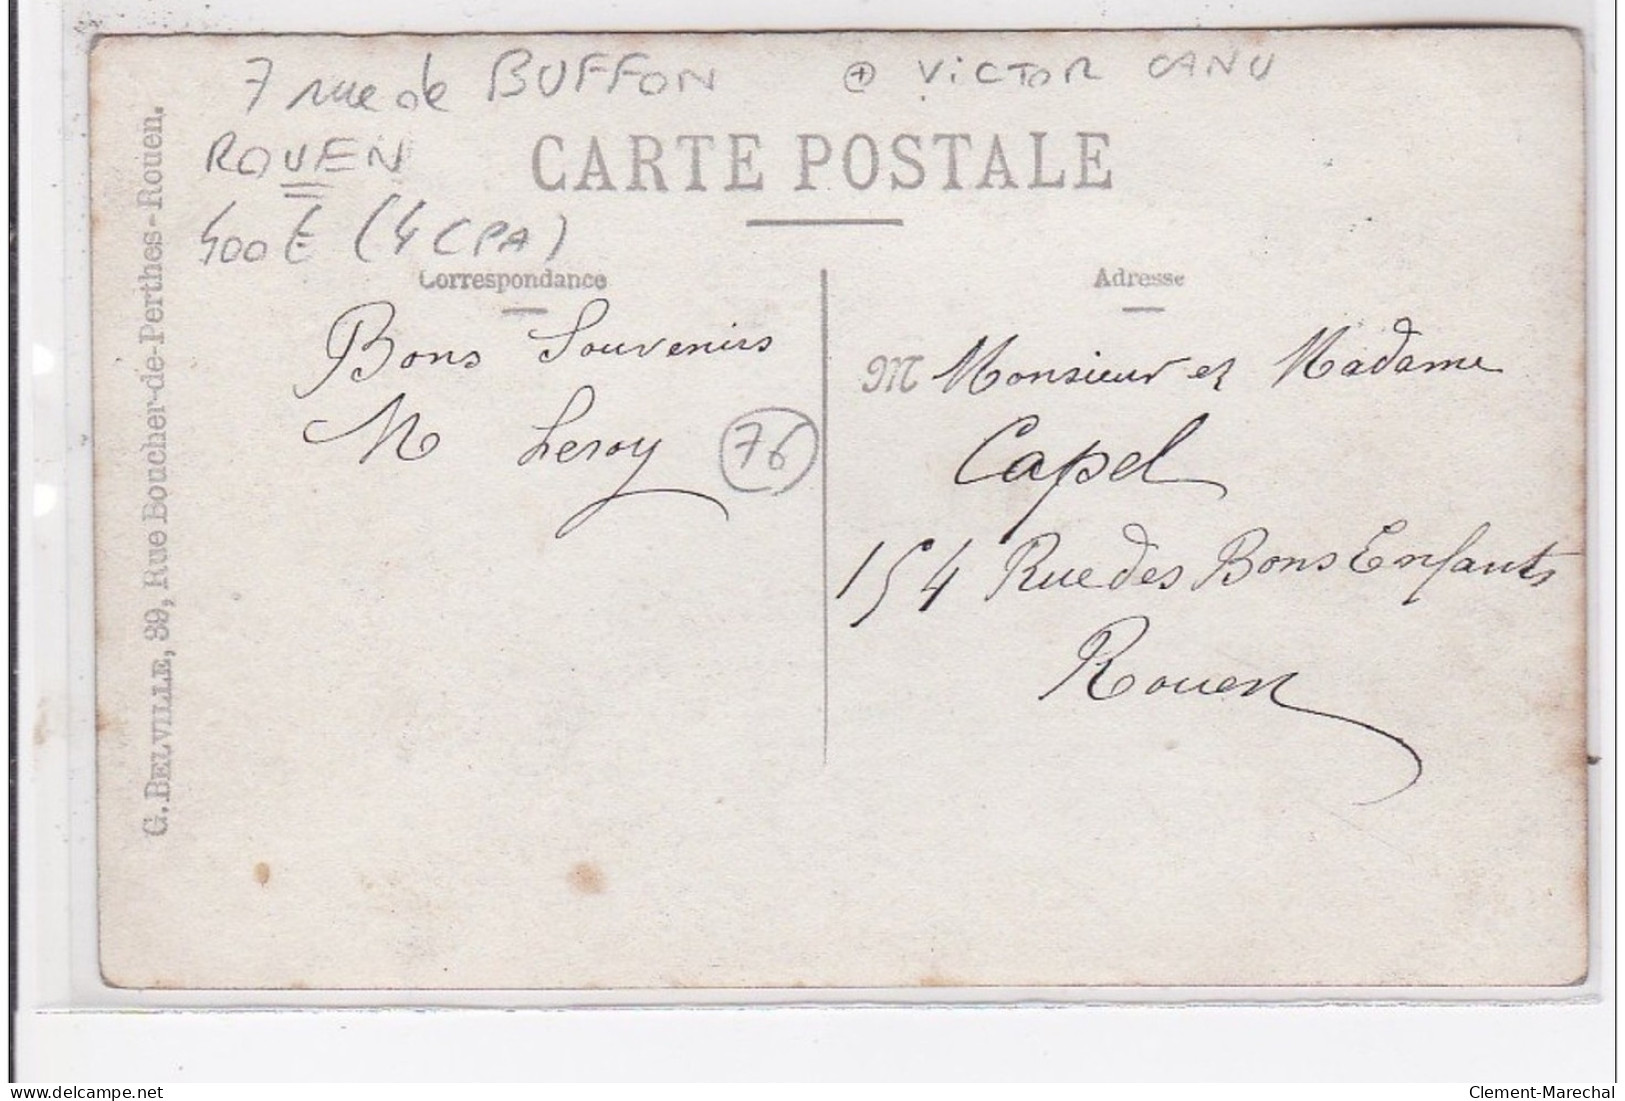 7 rue de BUFFON + VICTOR CANU
ROUEN
400€ (4 CPA)
CARTE POSTALE
Correspondance
Adresse
Bons Souvenirs
M Leroy
76
M Monsieur et Madame
Capel
154 Rue des Bons Enfants
Rouen
G. BELVILLE, 39, Rue Boucher-de-Perthes-Rouen.
delcampe.net
Clement-Marechal